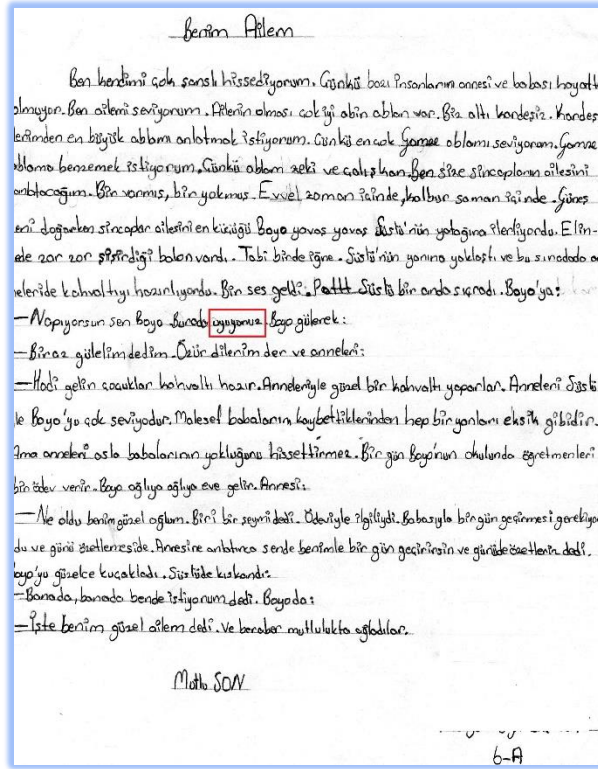 Benim Ailem
Ben kendimi çok şanslı hissediyorum. Çünkü bazı insanların annesi ve babası hayatt
olmuyor. Ben ailemi seviyorum. Ailenin olması çok iyi abin ablan var. Biz altı kardeşiz. Kardeş
lerimden en büyük ablamı anlatmak istiyorum. Çünkü en çok Gamze ablamı seviyorum. Gamze
ablama benzemek istiyorum. Çünkü ablam zeki ve çalışkan. Ben size sincapların ailesini
anlatacağım. Bir varmış, bir yokmuş. Evvel zaman içinde, kalbur saman içinde. Güneş
yeni doğarken sincaplar ailesini en küçüğü Boyo yavaş yavaş Süslü'nün yatağına ilerliyordu. Elin-
de zor zor şişirdiği balon vardı. Tabi birde iğne. Süslü'nün yanına yaklaştı ve bu sıradada an
neleride kahvaltıyı hazırlıyordu. Bir ses geldi: Pattt Süslü bir anda sıçradı. Boyo'ya:
- Napıyorsun sen Boyo Burada uyuyoruz. Boyo gülerek:
- Biraz gülelim dedim. Özür dilerim der ve anneleri:
- Hadi gelin çocuklar kahvaltı hazır. Anneleriyle güzel bir kahvaltı yaparlar. Anneleri Süslü
le Boyo'yu çok seviyodur. Malesef babalarını kaybettiklerinden hep bir yanları eksik gibidir.
Ama anneleri asla babalarının yokluğunu hissettirmez. Bir gün Boyo'nun okulunda öğretmenleri
bir ödev verir. Boyo ağlıya ağlıya eve gelir. Annesi:
- Ne oldu benim güzel oğlum. Biri bir şeymi dedi. Ödeviyle ilgiliydi. Babasıyla bir gün geçirmesi gerekiyo
du ve günü özetlemeside. Annesine anlatınca sende benimle bir gün geçirirsin ve günüde özetlerin dedi.
Boyo'yu güzelce kucakladı. Süslüde kıskandı:
- Banada, banada bende istiyorum dedi. Boyoda:
- İşte benim güzel ailem dedi. Ve beraber mutlulukta ağladılar.
Mutlu SON
6-A